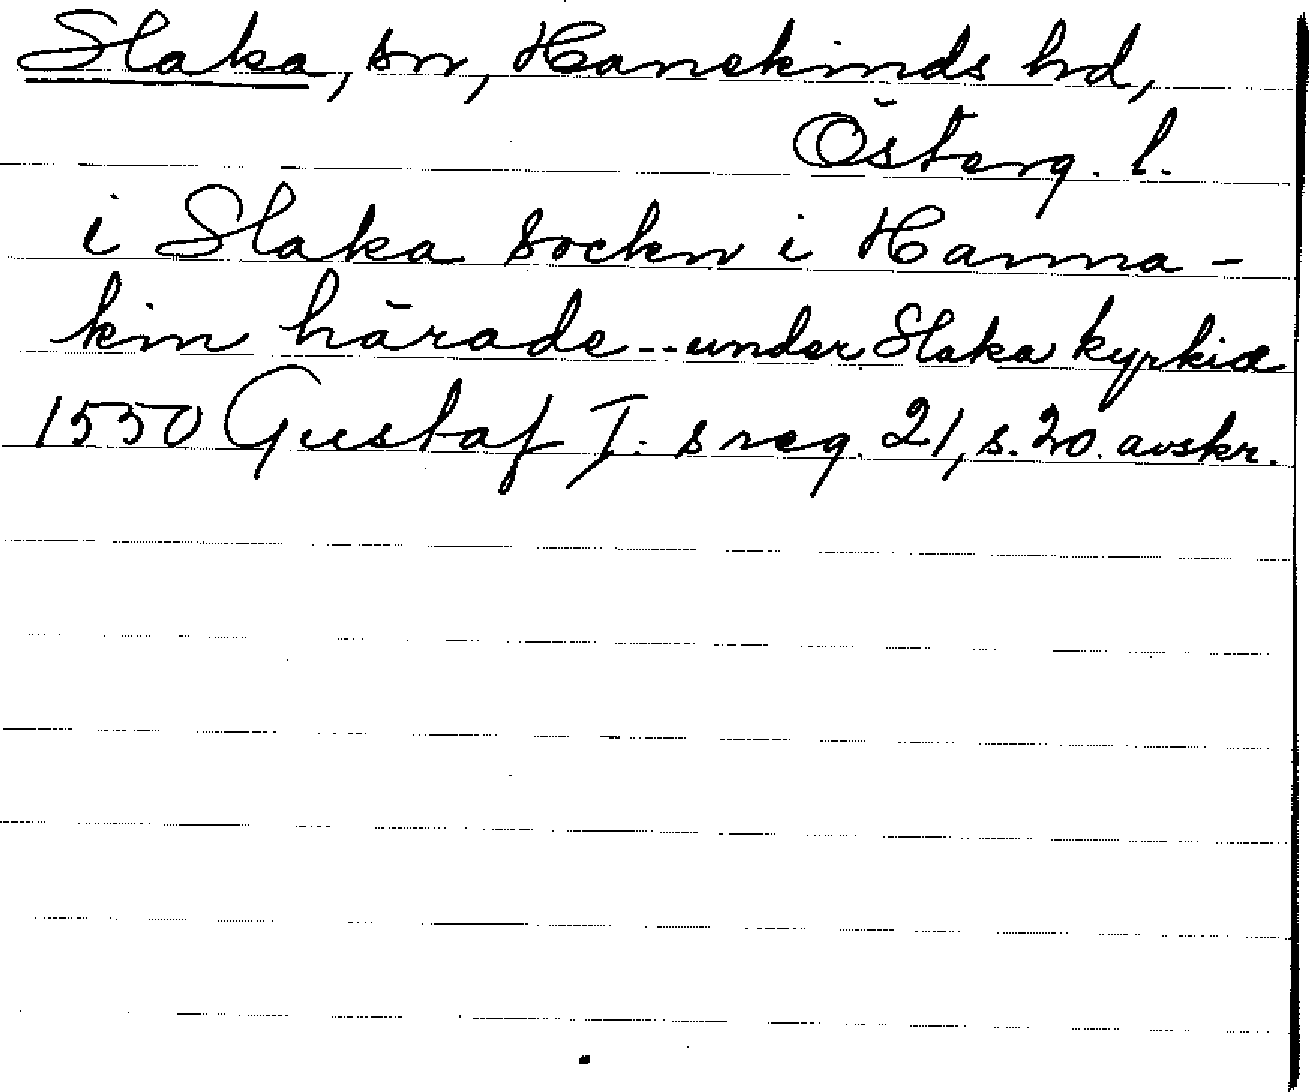 Slaka, sn, Hanekinds hd,
Österg. l.
i Slaka sockn i Hanna-
kin härade -- under Slaka kyrkiæ
1550 Gustaf I:s reg. 21, s. 20. avskr.